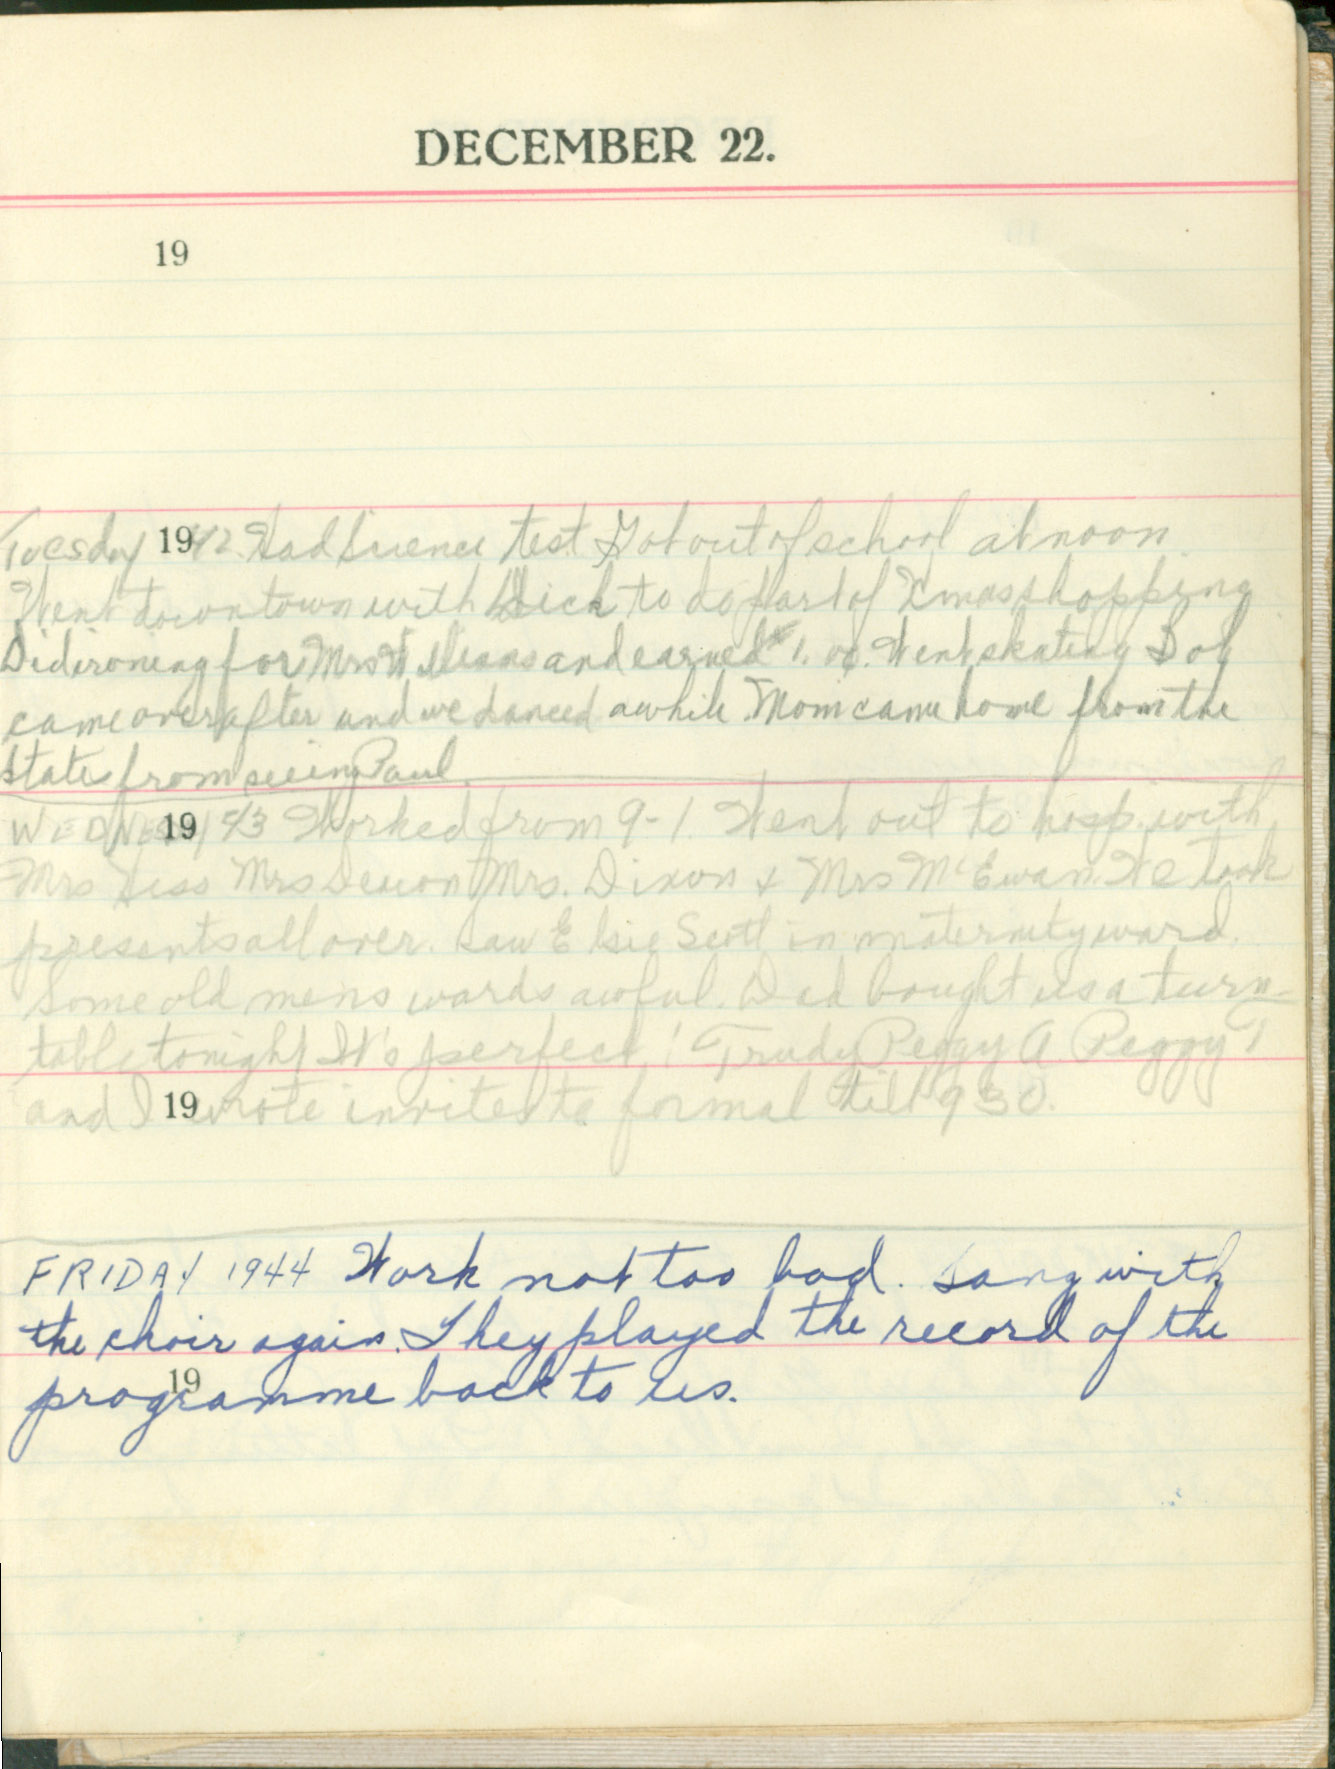 DECEMBER 22.
19
Tuesday 1942. Had Science test Got out of school at noon.
Went downtown with Dick to do part of Xmas shopping
Did ironing for Mrs Williams and earned $1.00. Went skating
came over after and we danced awhile. Mom came home from the
States from seeing Paul.
WEDNESDAY 1943 Worked from 9-1. Went out to hosp. with
Mrs Hess Mrs Mrs. Dixon & Mrs McEwan. We took
presents all over. Saw Elsie Scott in maternity ward.
Some old mens wards awful. Dad bought us a turn-
table tonight It's perfect! Trudy Peggy A Peggy T
and I wrote invites to formal till 9 30.
19
FRIDAY 1944 Work not too bad. Sang with
the choir again. They played the record of the
programme back to us.
19